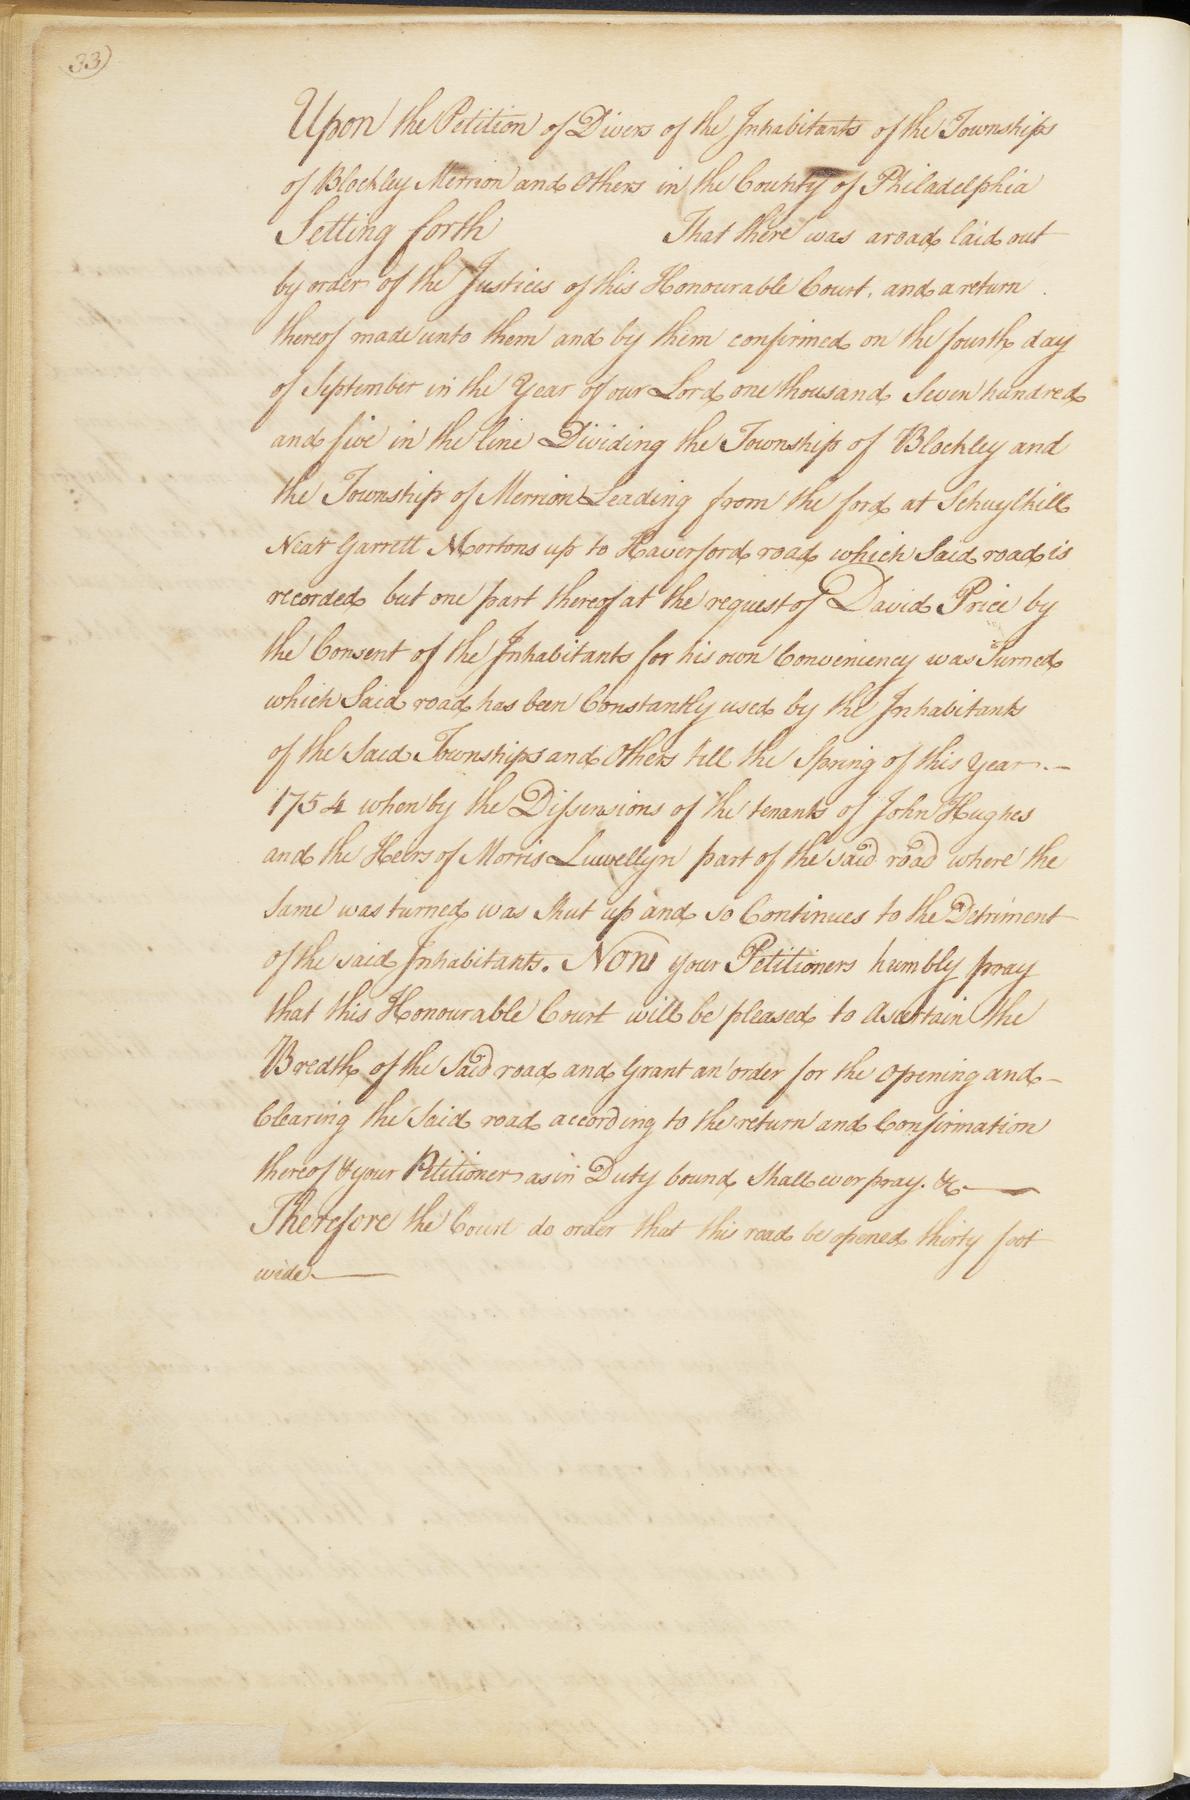 33
Upon the Petition of Divers of the Inhabitants of the Townships
of Blockley Merrion and Others in the County of Philadelphia
Setting forth That there was a road laid out
by order of the Justices of this Honourable Court, and a return
thereof made unto them and by them confirmed on the fourth day
of September in the Year of our Lord one thousand Seven hundred
and five in the line Dividing the Township of Blockley and
the Township of Merrion Leading from the ford at Schuylkill
Near Garrett Mortons up to Haverford road which Said road is
recorded but one part thereof at the request of David Price by
the Consent of the Inhabitants for his own Conveniency was Turned
which Said road has been Constantly used by the Inhabitants
of the Said Townships and Others till the Spring of this Year.—
1754 when by the Dissensions of the tenants of John Hughes
and the Heers of Morris Luwellyn part of the said road where the
same was turned was Shut up and so Continues to the Detriment
of the said Inhabitants. Now your Petitioners humbly pray
that this Honourable Court will be pleased to Ascertain the
Bredth of the Said road and Grant an order for the Opening and—
Clearing the Said road according to the return and Confirmation
thereof & your Petitioners as in Duty bound Shall ever pray. &c—
Therefore the Court do order that this road be opened thirty foot
wide—